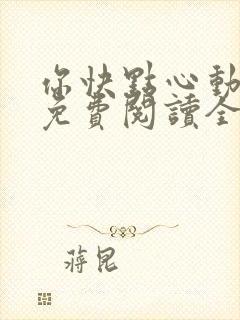 你快點心動
免費閱讀全
蔣昆